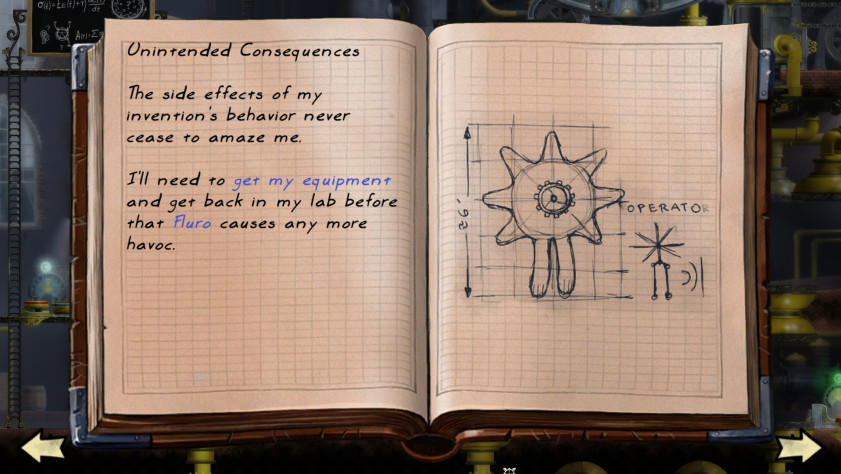 Unintended Consequences
The side effects of my
invention's behavior never
cease to amaze me.
I'll need to get my equipment
and get back in my lab before
that Fluro causes any more
havoc.
OPERATOR